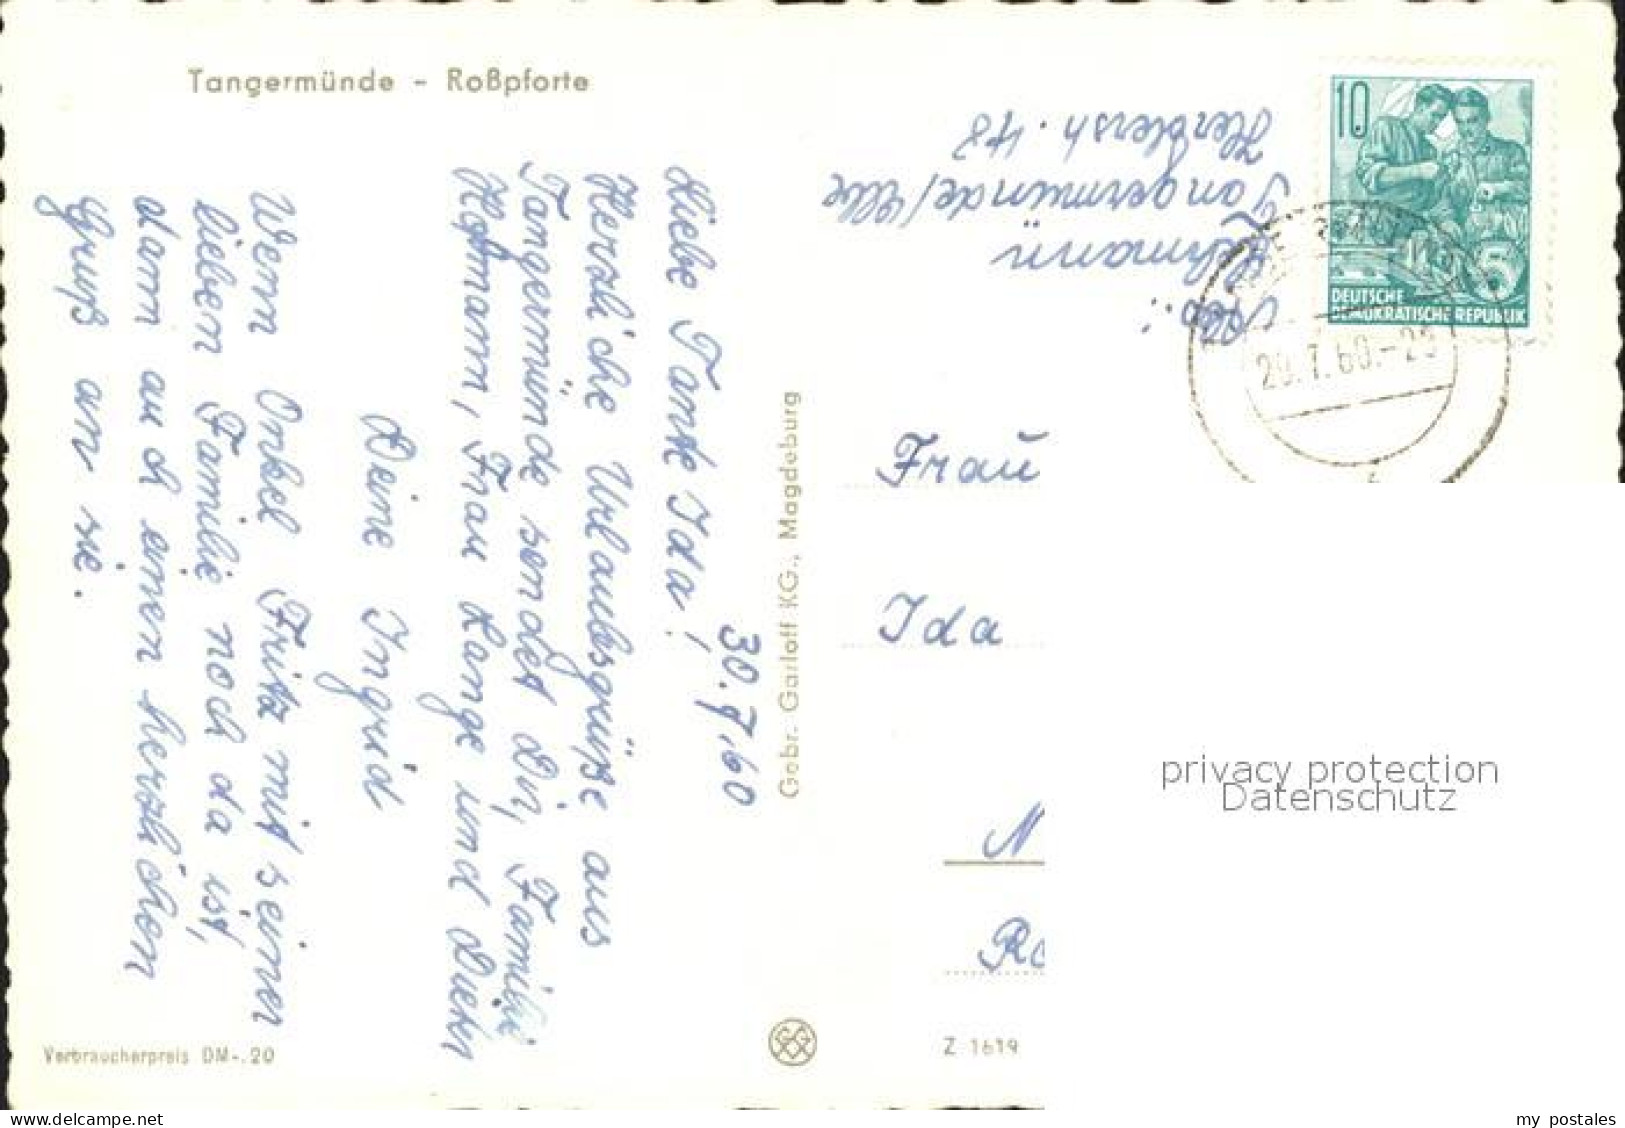 Tangermünde – Roßpforte
30.7.60
Liebe Tante Ida!
Herzliche Urlaubsgrüße aus
Tangermünde sendet Dir, Familie
Hofmann, Frau Lange und Dieter
Deine Ingrid
Wenn Onkel Fritz mit seiner
lieben Familie noch da ist,
dann auch einen herzlichen
Gruß an sie.
Verbraucherpreis DM -.20
Gebr. Garloff KG., Magdeburg
Z 1619
Tangermünde/Elbe
48
10
5
DEUTSCHE
DEMOKRATISCHE REPUBLIK
29.7.60.-
Frau
Ida
N
Ro
privacy protection
Datenschutz
my postales